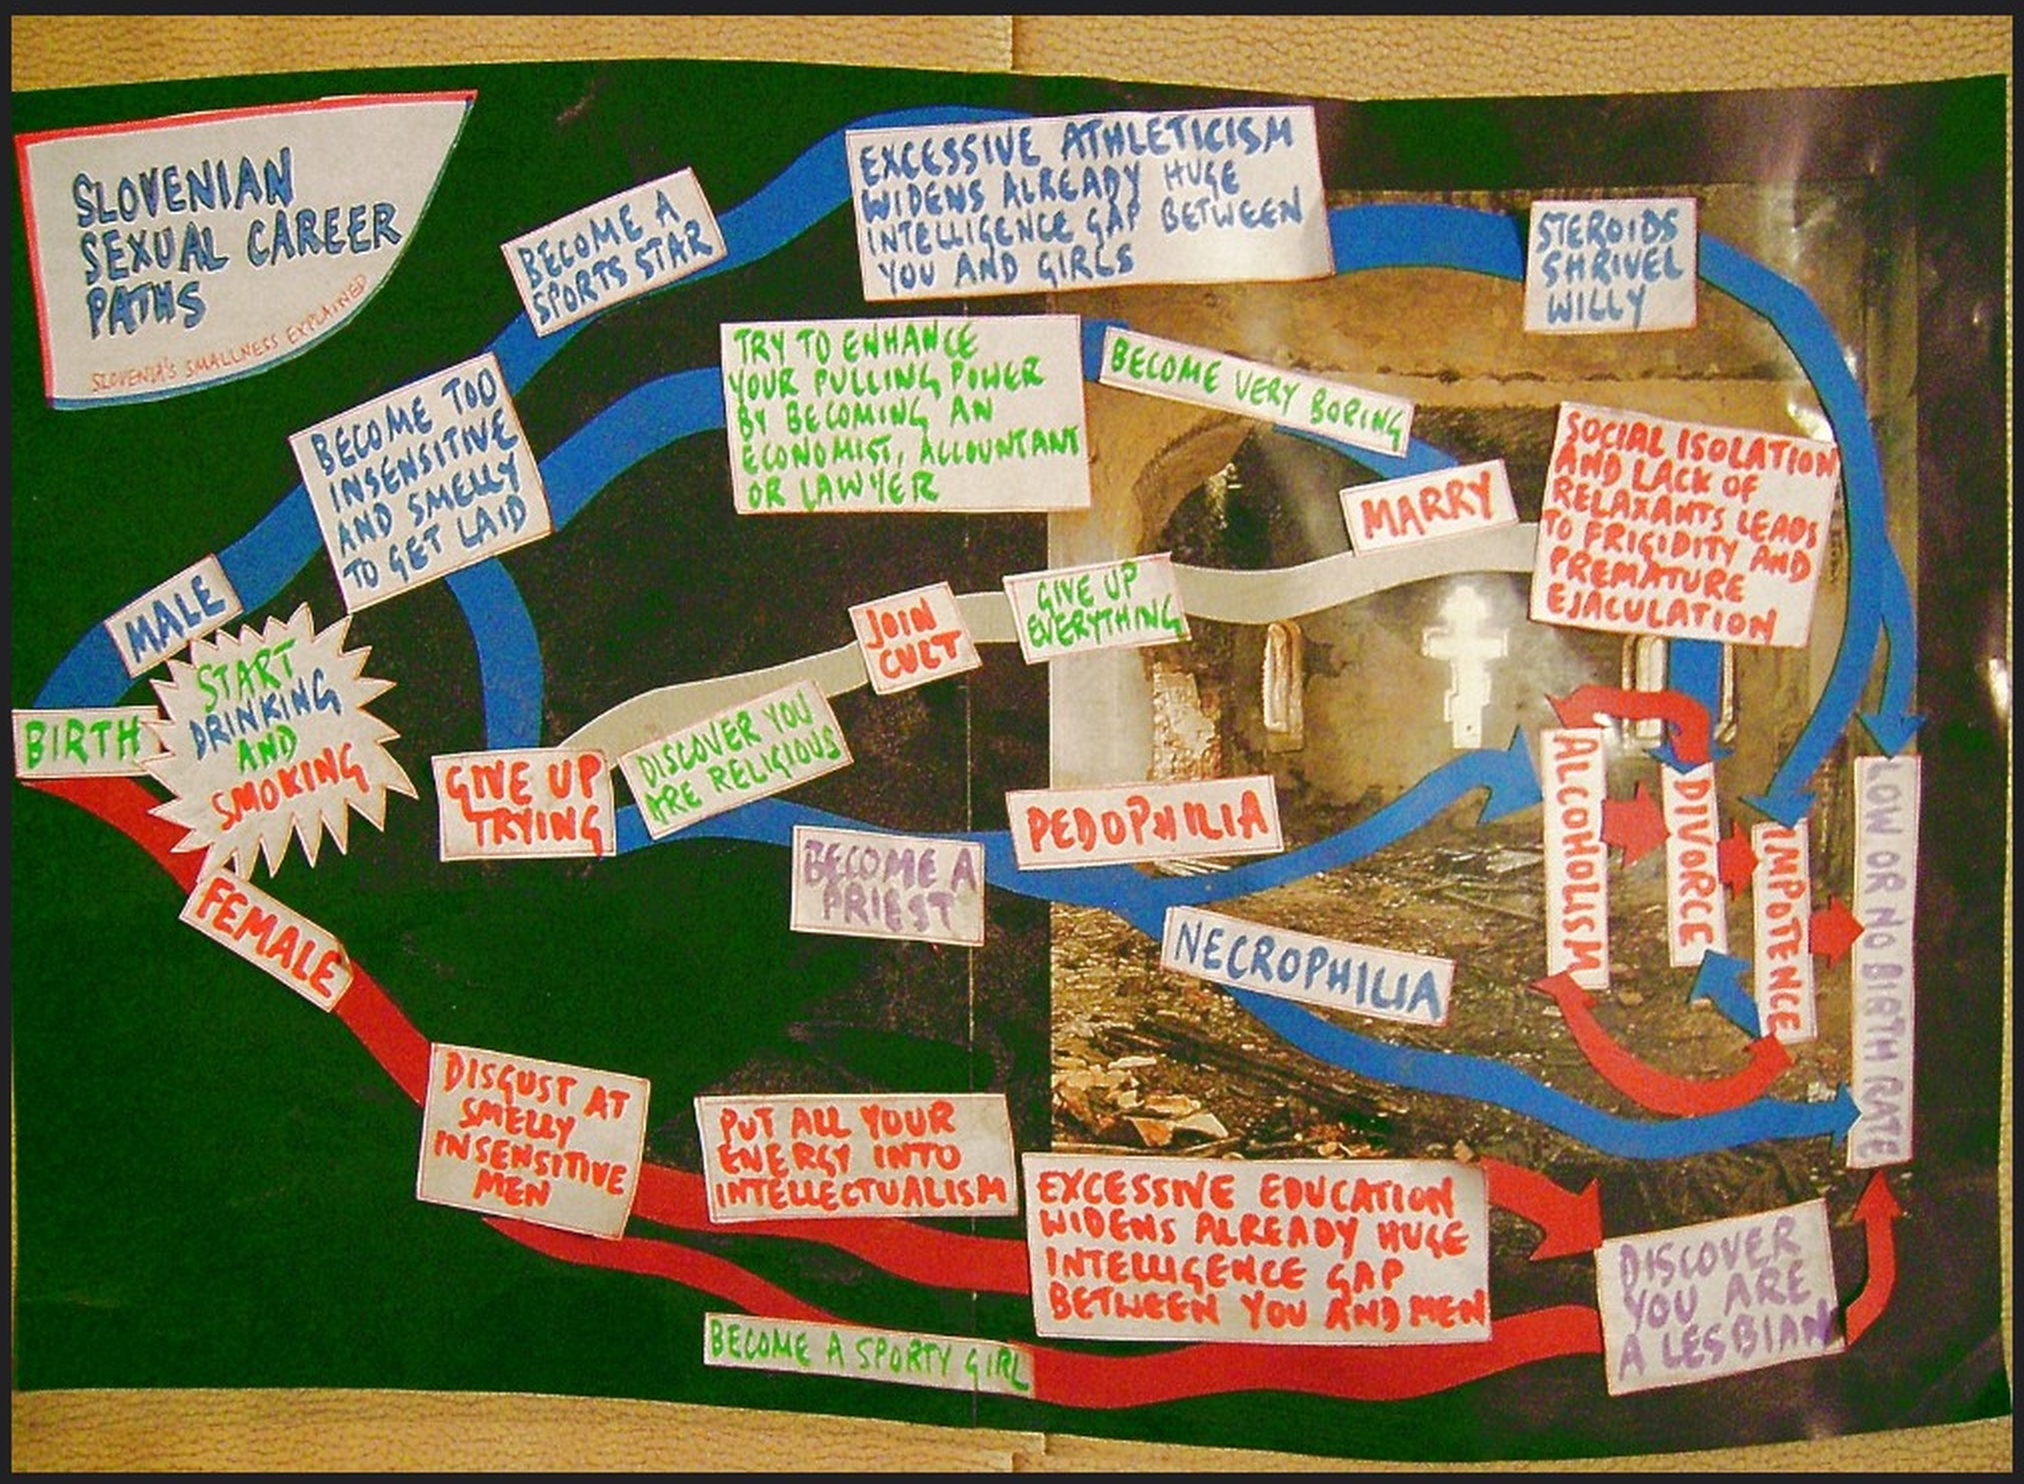 SLOVENIAN
SEXUAL CAREER
PATHS
SLOVENIA'S SMALLNESS EXPLAINED
BIRTH
START
DRINKING
AND
SMOKING
MALE
BECOME TOO
INSENSITIVE
AND SMELLY
TO GET LAID
BECOME A
SPORTS STAR
EXCESSIVE ATHLETICISM
WIDENS ALREADY HUGE
INTELLIGENCE GAP BETWEEN
YOU AND GIRLS
STEROIDS
SHRIVEL
WILLY
TRY TO ENHANCE
YOUR PULLING POWER
BY BECOMING AN
ECONOMIST, ACCOUNTANT
OR LAWYER
BECOME VERY BORING
MARRY
SOCIAL ISOLATION
AND LACK OF
RELAXANTS LEADS
TO FRIGIDITY AND
PREMATURE
EJACULATION
GIVE UP
TRYING
DISCOVER YOU
ARE RELIGIOUS
JOIN
CULT
GIVE UP
EVERYTHING
BECOME A
PRIEST
PEDOPHILIA
NECROPHILIA
ALCOHOLISM
DIVORCE
IMPOTENCE
LOW OR NO BIRTH RATE
FEMALE
DISGUST AT
SMELLY
INSENSITIVE
MEN
PUT ALL YOUR
ENERGY INTO
INTELLECTUALISM
EXCESSIVE EDUCATION
WIDENS ALREADY HUGE
INTELLIGENCE GAP
BETWEEN YOU AND MEN
BECOME A SPORTY GIRL
DISCOVER
YOU ARE
A LESBIAN